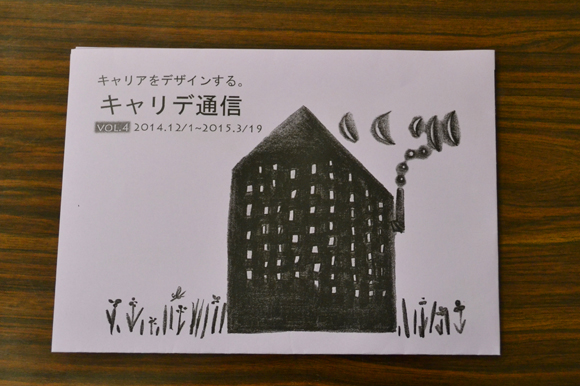 キャリアをデザインする。
キャリデ通信
VOL.4 2014.12/1~2015.3/19